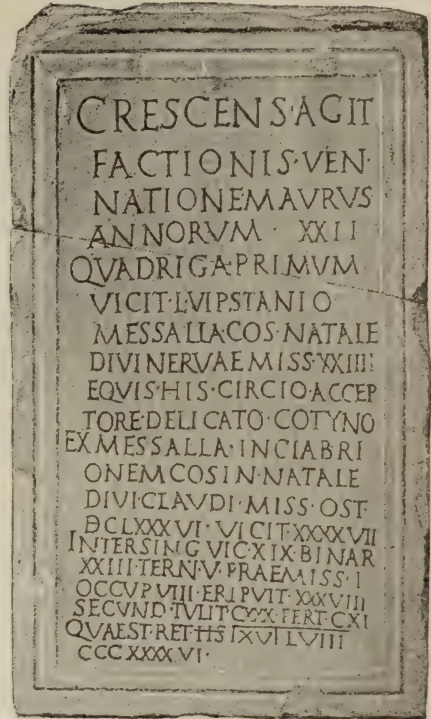 CRESCENS·AGIT
FACTIONIS·VEN·
NATIONE MAVRVS
ANNORVM · XXII
QVADRIGA·PRIMVM
VICIT·L·VIPSTANIO
MESSALLA·COS·NATALE
DIVI NERVAE MISS·XXIIII
EQVIS·HIS·CIRCIO·ACCEP
TORE·DELICATO·COTYNO
EX MESSALLA·IN CIABRI
ONEM COS IN·NATALE
DIVI·CLAVDI·MISS·OST·
DCLXXXVI·VICIT·XXXXVII
INTER SING VIC·XIX·BINAR
XXIII·TERN·V·PRAEMISS·I
OCCVP·VIII·ERIPVIT·XXXVIII
SECVND·TVLIT·CXXX·TERT·CXI
QVAEST·RET·HS LVIII
CCCXXXXVI·